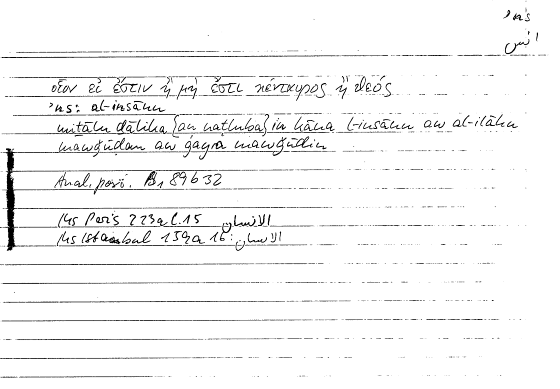 ʾns
انس
οἷον εἰ ἔστιν ἢ μή ἐστι κένταυρος ἢ θεός
ʾns: al-insānu
miṯālu ḏālika {an naṭluba} in kāna l-insānu aw al-ilāhu
mawǧūdan aw ġayra mawǧūdin
Anal. post. B1 89b32
Ms Paris 223a l.15 الانسان
Ms Istanbul 159a 16: الانسان